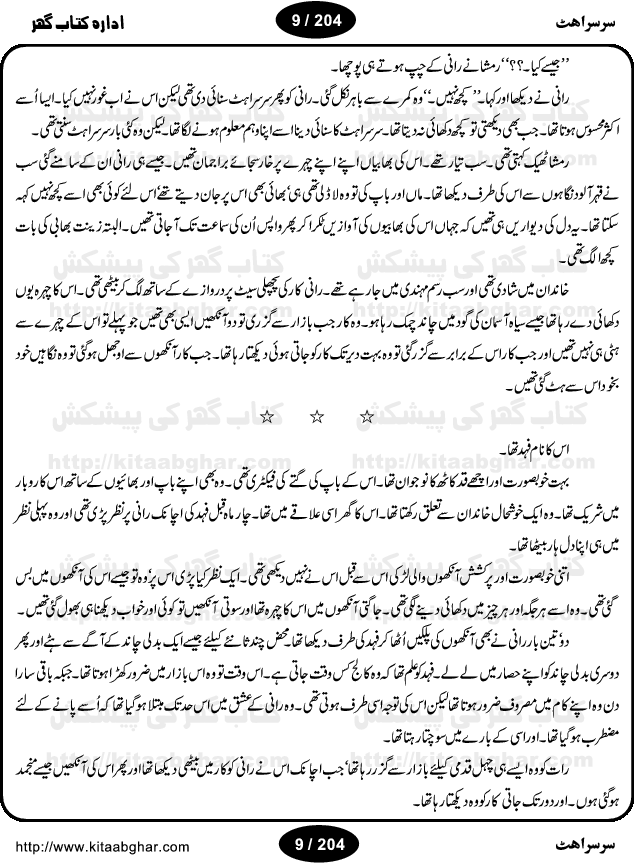 سرسراہٹ
9 / 204
ادارہ کتاب گھر
’’جیسے کیا۔؟؟‘‘ رمشا نے رانی کے چپ ہوتے ہی پوچھا۔
رانی نے دیکھا اور کہا۔ ’’کچھ نہیں۔‘‘ وہ کمرے سے باہر نکل گئی۔ رانی کو پھر سرسراہٹ سنائی دی تھی لیکن اس نے اب غور نہیں کیا۔ ایسا اُسے
اکثر محسوس ہوتا تھا۔ جب بھی دیکھتی تو کچھ دکھائی نہ دیتا تھا۔ سرسراہٹ کا سنائی دینا اسے اپنا وہم معلوم ہونے لگا تھا۔ لیکن وہ کئی بار سرسراہٹ سنتی تھی۔
رمشا ٹھیک کہتی تھی۔ سب تیار تھے۔ اس کی بھابیاں اپنے اپنے چہرے پر خار سجائے براجمان تھیں۔ جیسے ہی رانی ان کے سامنے گئی سب
نے قہر آلود نگاہوں سے اس کی طرف دیکھا تھا۔ ماں اور باپ کی تو وہ لاڈلی تھی ہی‘ بھائی بھی اس پر جان دیتے تھے‘ اس لئے کوئی بھی اسے کچھ نہیں کہہ
سکتا تھا۔ یہ دل کی دیواریں ہی تھیں کہ جہاں اس کی بھابیوں کی آوازیں ٹکرا کر پھر واپس اُن کی سماعت تک آ جاتی تھیں۔ البتہ زینت بھابی کی بات
کچھ الگ تھی۔
خاندان میں شادی تھی اور سب رسم مہندی میں جا رہے تھے۔ رانی کار کی پچھلی سیٹ پر دروازے کے ساتھ لگ کر بیٹھی تھی۔ اس کا چہرہ یوں
دکھائی دے رہا تھا جیسے سیاہ آسمان کی گود میں چاند چمک رہا ہو۔ وہ کار جب بازار سے گزری تو دو آنکھیں ایسی بھی تھیں جو پہلے تو اس کے چہرے سے
ہٹی ہی نہیں تھیں اور جب کار اس کے برابر سے گزر گئی تو وہ بہت دیر تک کار کو جاتی ہوئی دیکھتا رہا تھا۔ جب کار آنکھوں سے اوجھل ہو گئی تو وہ نگاہیں خود
بخود اس سے ہٹ گئی تھیں۔
☆ ☆ ☆
اس کا نام فہد تھا۔
بہت خوبصورت اور اچھے قد کاٹھ کا نوجوان تھا۔ اس کے باپ کی گتے کی فیکٹری تھی۔ وہ بھی اپنے باپ اور بھائیوں کے ساتھ اس کاروبار
میں شریک تھا۔ وہ ایک خوشحال خاندان سے تعلق رکھتا تھا۔ اس کا گھر اسی علاقے میں تھا۔ چار ماہ قبل فہد کی اچانک رانی پر نظر پڑی تھی اور وہ پہلی نظر
میں ہی اپنا دل ہار بیٹھا تھا۔
اتنی خوبصورت اور پرکشش آنکھوں والی لڑکی اس سے قبل اس نے نہیں دیکھی تھی۔ ایک نظر کیا پڑی اس پر‘ وہ تو جیسے اس کی آنکھوں میں بس
گئی تھی۔ وہ اسے ہر جگہ اور ہر چیز میں دکھائی دینے لگی تھی۔ جاگتی آنکھوں میں اس کا چہرہ تھا اور سوتی آنکھیں تو کوئی اور خواب دیکھنا ہی بھول گئی تھیں۔
دو تین بار رانی نے بھی آنکھوں کی پلکیں اُٹھا کر فہد کی طرف دیکھا تھا۔ محض چند ثانئے کیلئے جیسے ایک بدلی چاند کے آگے سے ہٹے اور پھر
دوسری بدلی چاند کو اپنے حصار میں لے لے۔ فہد کو علم تھا کہ وہ کالج کس وقت جاتی ہے۔ اس وقت تو وہ اس بازار میں ضرور کھڑا ہوتا تھا۔ جبکہ باقی سارا
دن وہ اپنے کام میں مصروف ضرور ہوتا تھا لیکن اس کی توجہ اسی طرف ہوتی تھی۔ وہ رانی کے عشق میں اس حد تک مبتلا ہو گیا تھا کہ اُسے پانے کے لئے
مضطرب ہو گیا تھا۔ اور اسی کے بارے میں سوچتا رہتا تھا۔
رات کو وہ ایسے ہی چہل قدمی کیلئے بازار سے گزر رہا تھا‘ جب اچانک اس نے رانی کو کار میں بیٹھی دیکھا تھا اور پھر اس کی آنکھیں جیسے منجمد
ہو گئی ہوں۔ اور دور تک جاتی کار کو وہ دیکھتا رہا تھا۔
http://www.kitaabghar.com
9 / 204
سرسراہٹ